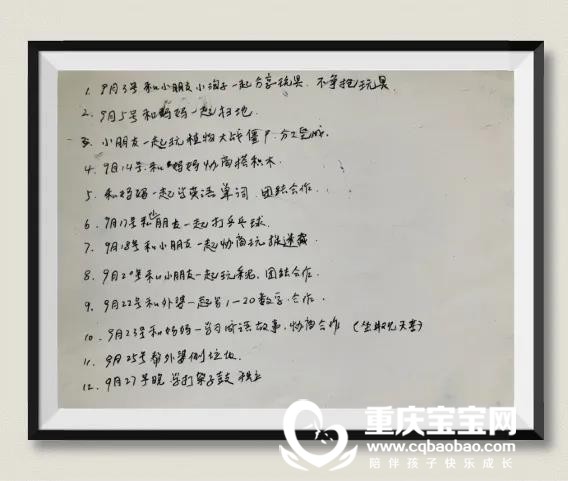 1. 9月3号和小朋友小泡子一起分享玩具．不争抢玩具
2. 9月5号和妈妈一起扫地．
3. 小朋友一起玩植物大战僵尸．分工完成．
4. 9月14号．和妈妈协商搭积木
5. 和妈妈一起学英语单词．团结合作．
6. 9月17号和小朋友一起打乒乓球．
7. 9月18号和小朋友一起协商玩捉迷藏
8. 9月20号和小朋友一起玩泥．团结合作．
9. 9月22号和外婆一起写1－20数字．合作．
10. 9月23号和妈妈一学习成语故事，协商合作
11. 9月25号帮外婆倒垃圾
12. 9月27号晚 学打架子鼓 独立
重庆宝宝网
www.cqbaobao.com
陪伴孩子快乐成长